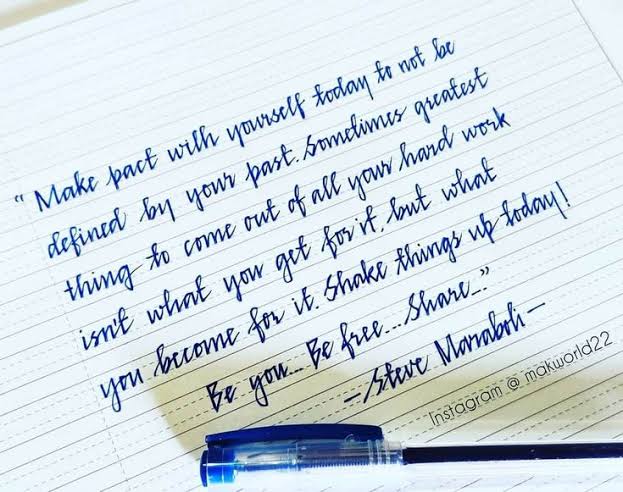 "Make pact with yourself today to not be
defined by your past. Sometimes greatest
thing to come out of all your hard work
isn't what you get for it, but what
you become for it. Shake things up today!
Be you... Be free... Share..."
-Steve Maraboli-
Instagram @ makworld22